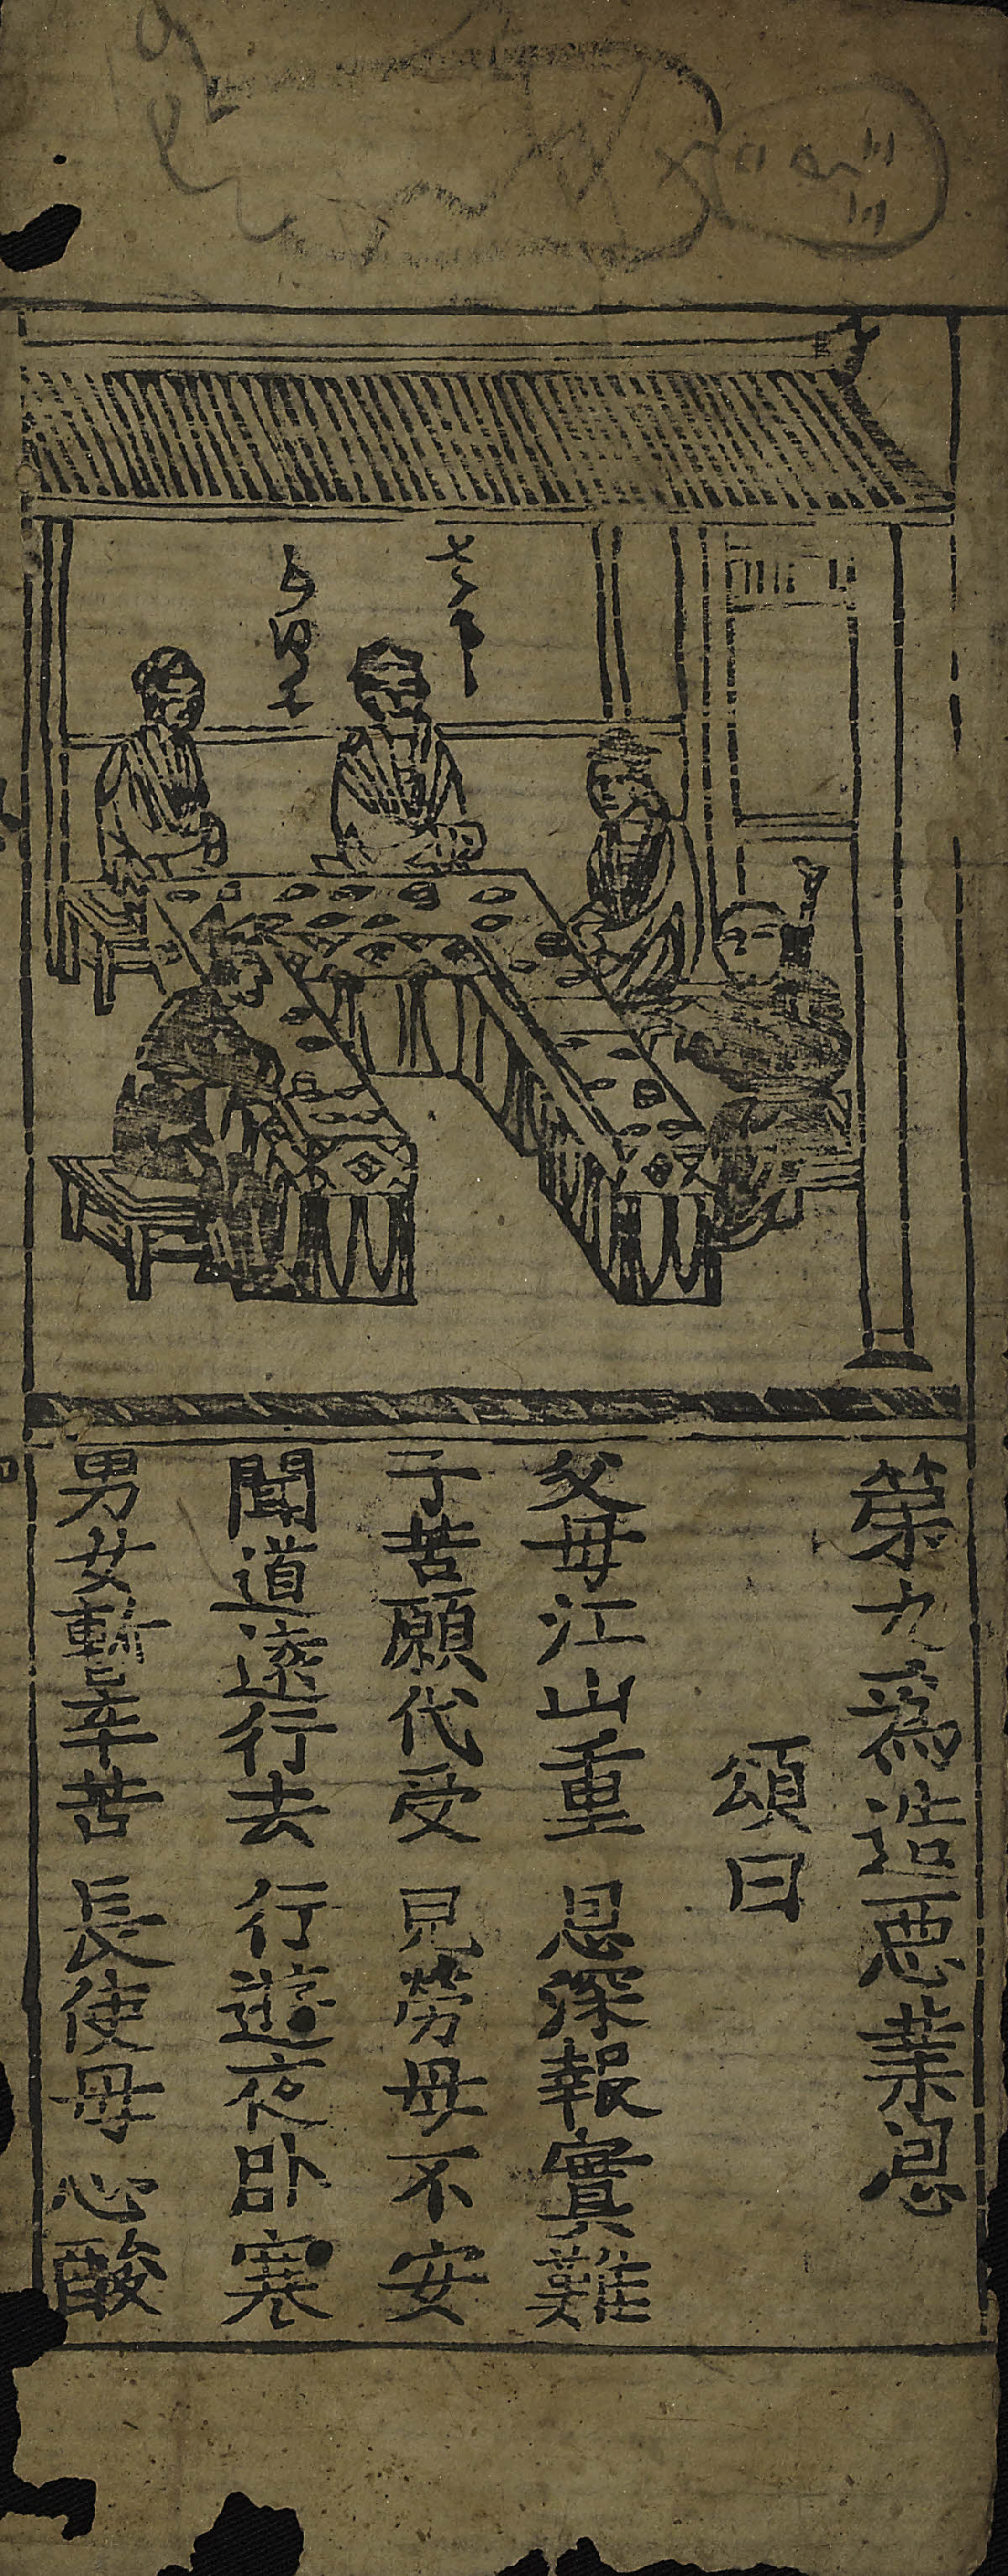 第九爲造惡業恩
頌曰
父母江山重 恩深報實難
子苦願代受 見勞母不安
聞道遠行去 行遊夜卧寒
男女暫辛苦 長使母心酸